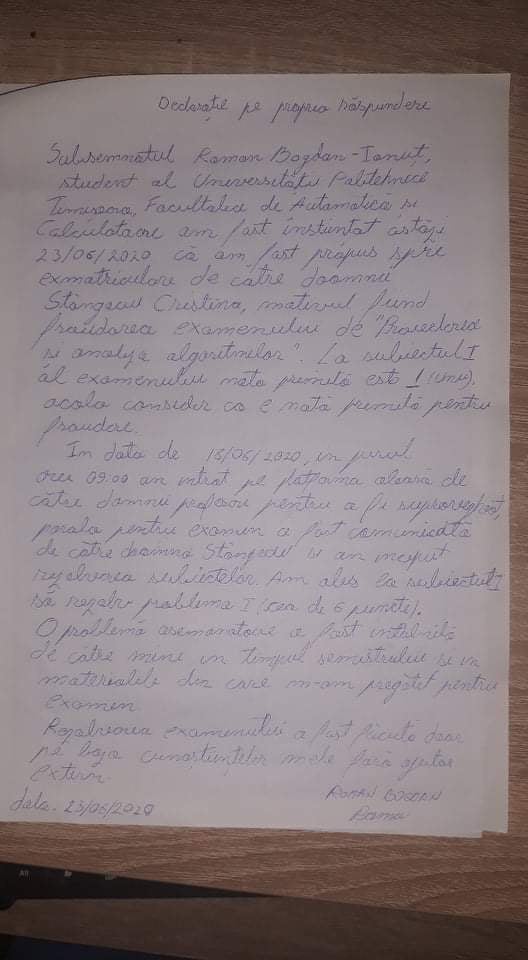 Declarație pe propria răspundere
Subsemnatul Roman Bogdan-Ionuț,
student al Universității Politehnice
Timișoara, Facultatea de Automatică și
Calculatoare am fost înștiințat astăzi
23/06/2020 că am fost propus spre
exmatriculare de către doamna
Stângaciu Cristina, motivul fiind
fraudarea examenului de "Proiectarea
și analiza algoritmilor". La subiectul I
al examenului nota primită este 1 (unu),
acolo consider ca e nota primită pentru
fraudare.
În data de 16/06/2020, în jurul
orei 09:00 am intrat pe platforma aleasă de
către domnii profesori pentru a fi supravegheat,
parola pentru examen a fost comunicată
de către doamna Stângaciu și am început
rezolvarea subiectelor. Am ales la subiectul I
să rezolv problema I (cea de 6 puncte).
O problemă asemanatoare a fost întâlnită
de către mine în timpul semestrului și în
materialele din care m-am pregătit pentru
examen.
Rezolvarea examenului a fost făcută doar
pe baza cunoștiințelor mele fără ajutor
extern.
ROMAN BOGDAN
data. 23/06/2020